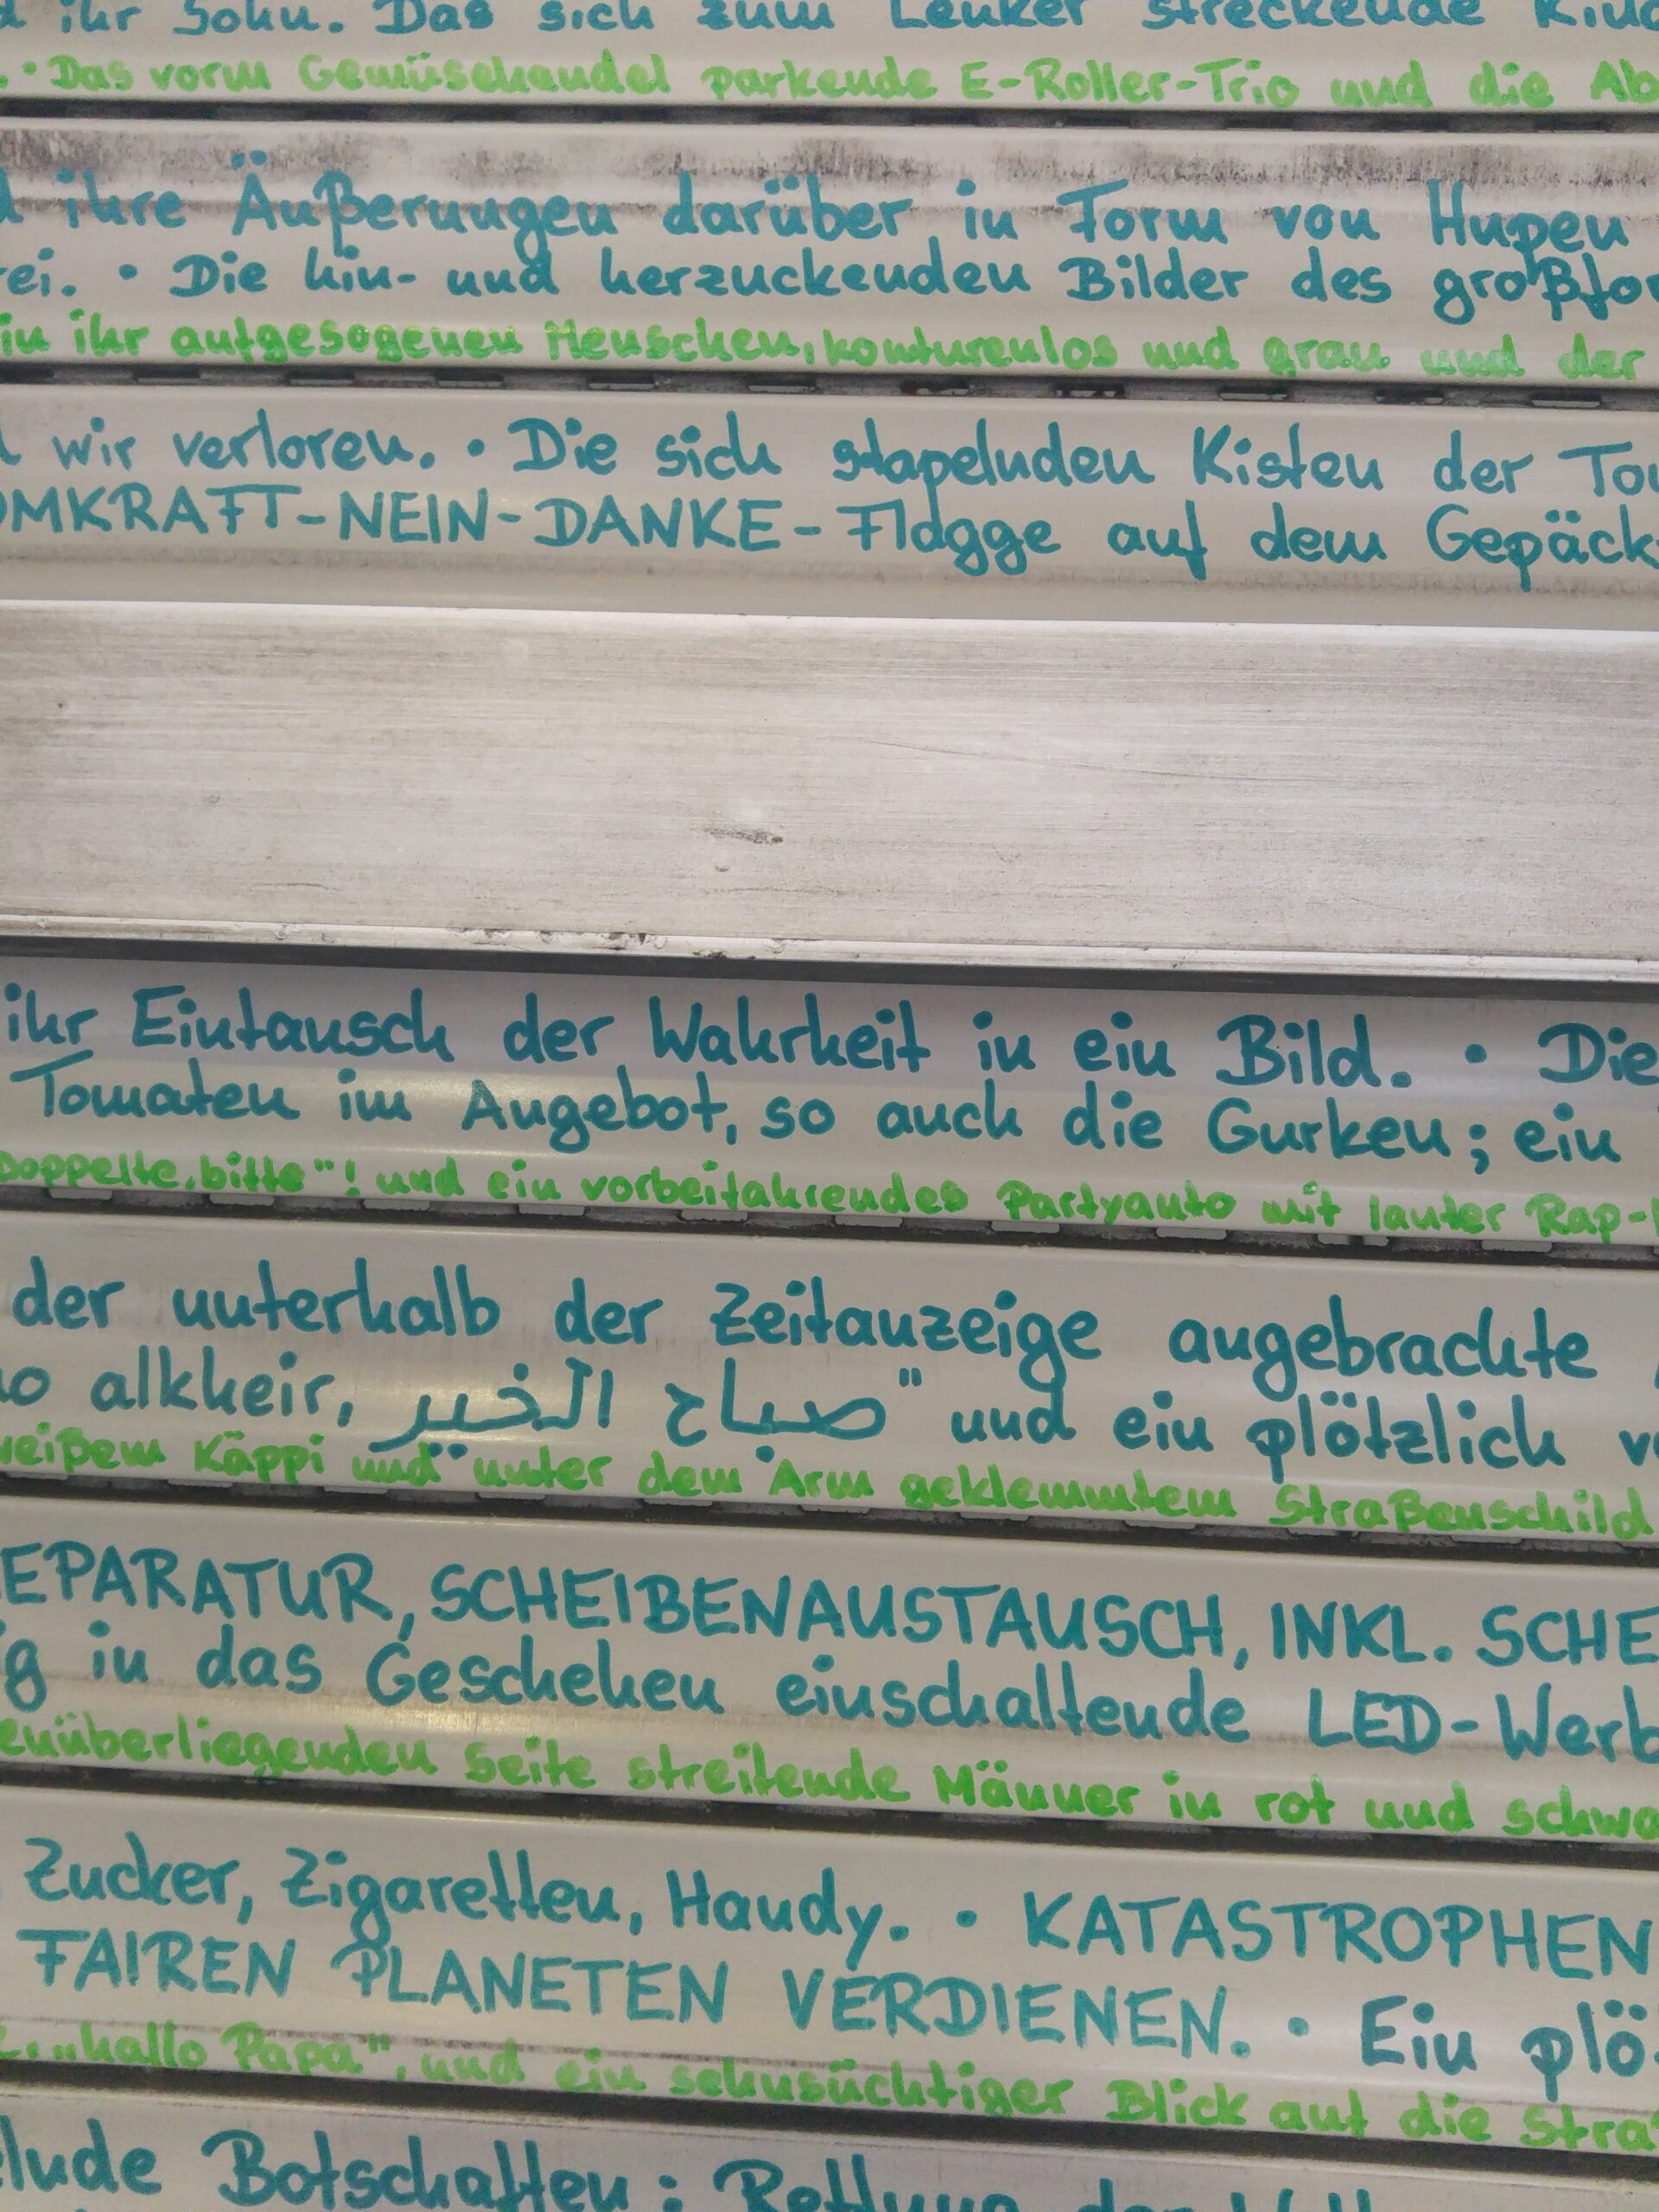 ihr Sohn. Das sich zum Lenker streckende
. • Das vorm Gemüsehandel parkende E-Roller-Trio und die Ab
d ihre Äußerungen darüber in Form von Hupen
rei. • Die hin- und herzuckenden Bilder des großfor
in ihr aufgesogenen Menschen, konturenlos und grau und der
wir verloren. • Die sich stapelnden Kisten der Tou
OMKRAFT-NEIN-DANKE-Flagge auf dem Gepäck
ihr Eintausch der Wahrheit in ein Bild. • Die
Tomaten im Angebot, so auch die Gurken; ein
Doppelte, bitte"! und ein vorbeifahrendes Partyauto mit lauter Rap-
der unterhalb der Zeitanzeige angebrachte
o alkheir, صباح الخير" und ein plötzlich v
weißem Käppi und unter dem Arm geklemmtem Straßenschild
EPARATUR, SCHEIBENAUSTAUSCH, INKL. SCHE
ig in das Geschehen einschaltende LED-Werb
enüberliegenden Seite streitende Männer in rot und schwa
Zucker, Zigaretten, Handy. • KATASTROPHEN
FAIREN PLANETEN VERDIENEN. • Ein plö
„hallo Papa", und ein sehnsüchtiger Blick auf die Straß
elnde Botschaften: Rettung der